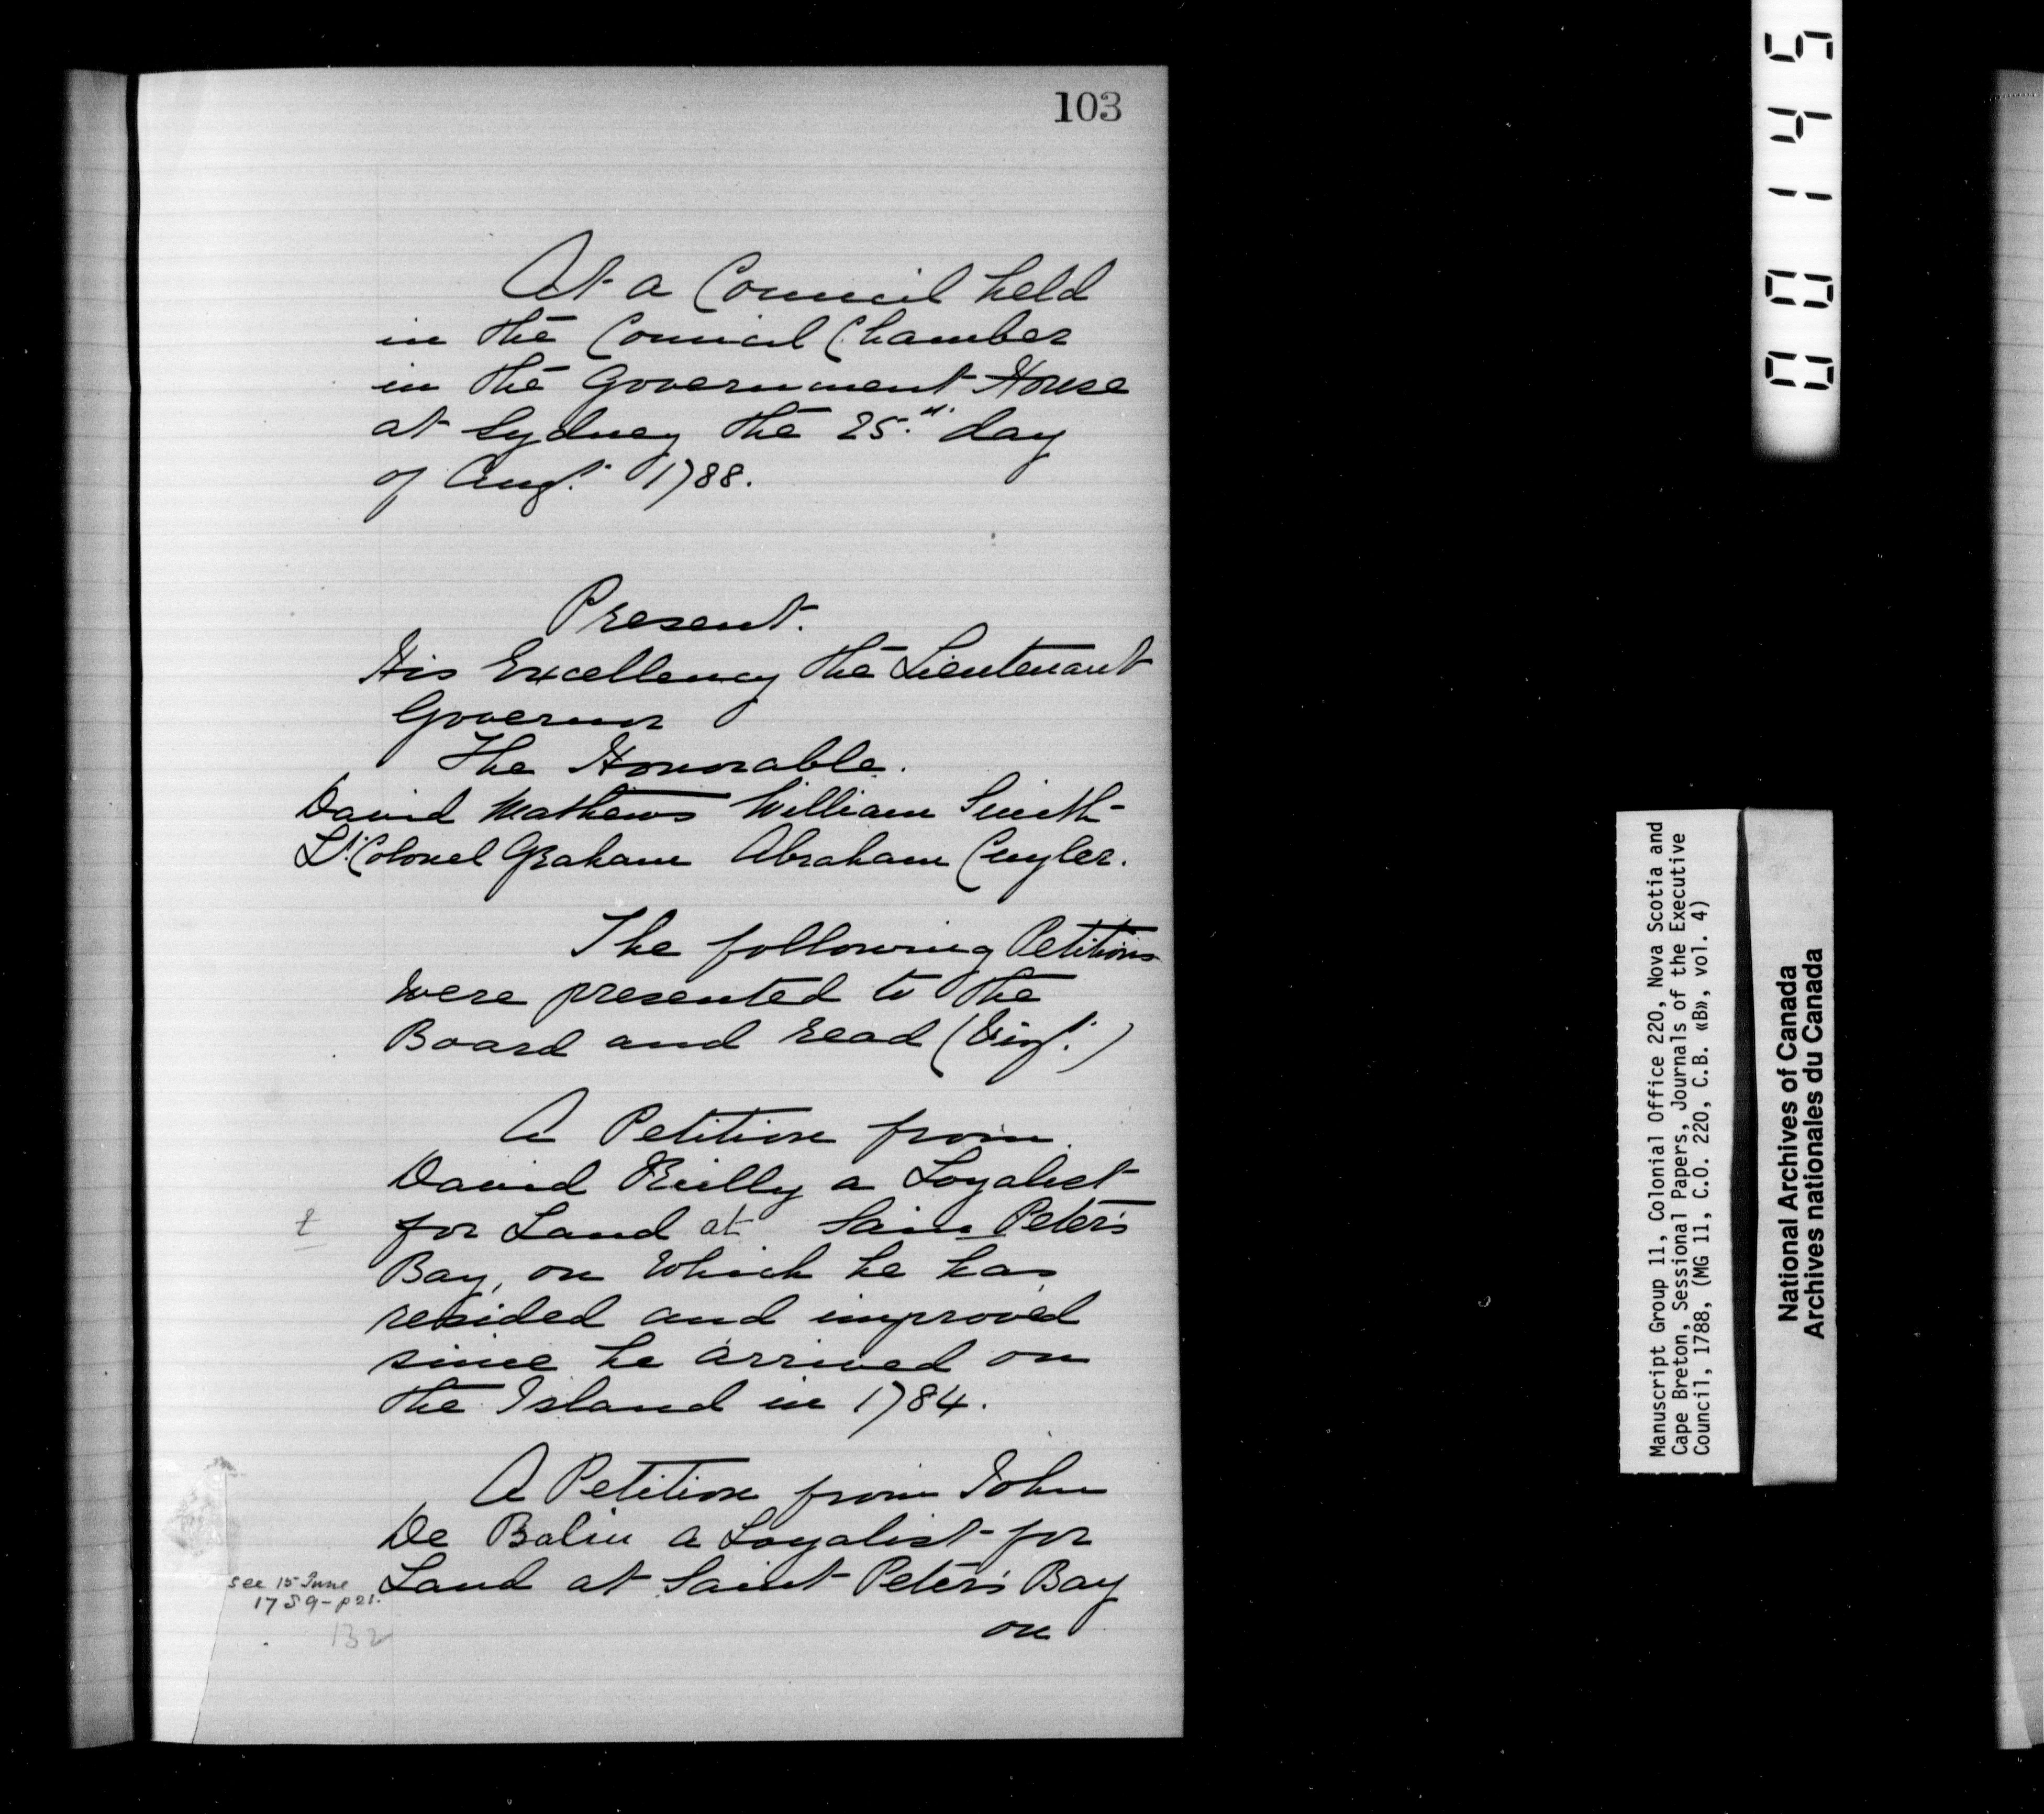 103
At a Council held
in the Council Chamber
in the Government House
at Sydney the 25.th day
of Augt. 1788.
Present.
His Excellency the Lieutenant
Governor
The Honorable.
David Mathews William Smith
Lt. Colonel Graham Abraham Cuyler.
The following Petitions
were presented to the
Board and read (Vizt.)
A Petition from
David Reilly a Loyalist
for Land at Saint Peter's
Bay, on which he has
resided and improved
since he arrived on
the Island in 1784.
A Petition from John
De Balin a Loyalist for
see 15 June
1789 - p 21.
Land at Saint Peter's Bay
132
on
00145
Manuscript Group 11, Colonial Office 220, Nova Scotia and
Cape Breton, Sessional Papers, Journals of the Executive
Council, 1788, (MG 11, C.O. 220, C.B. «B», vol. 4)
National Archives of Canada
Archives nationales du Canada